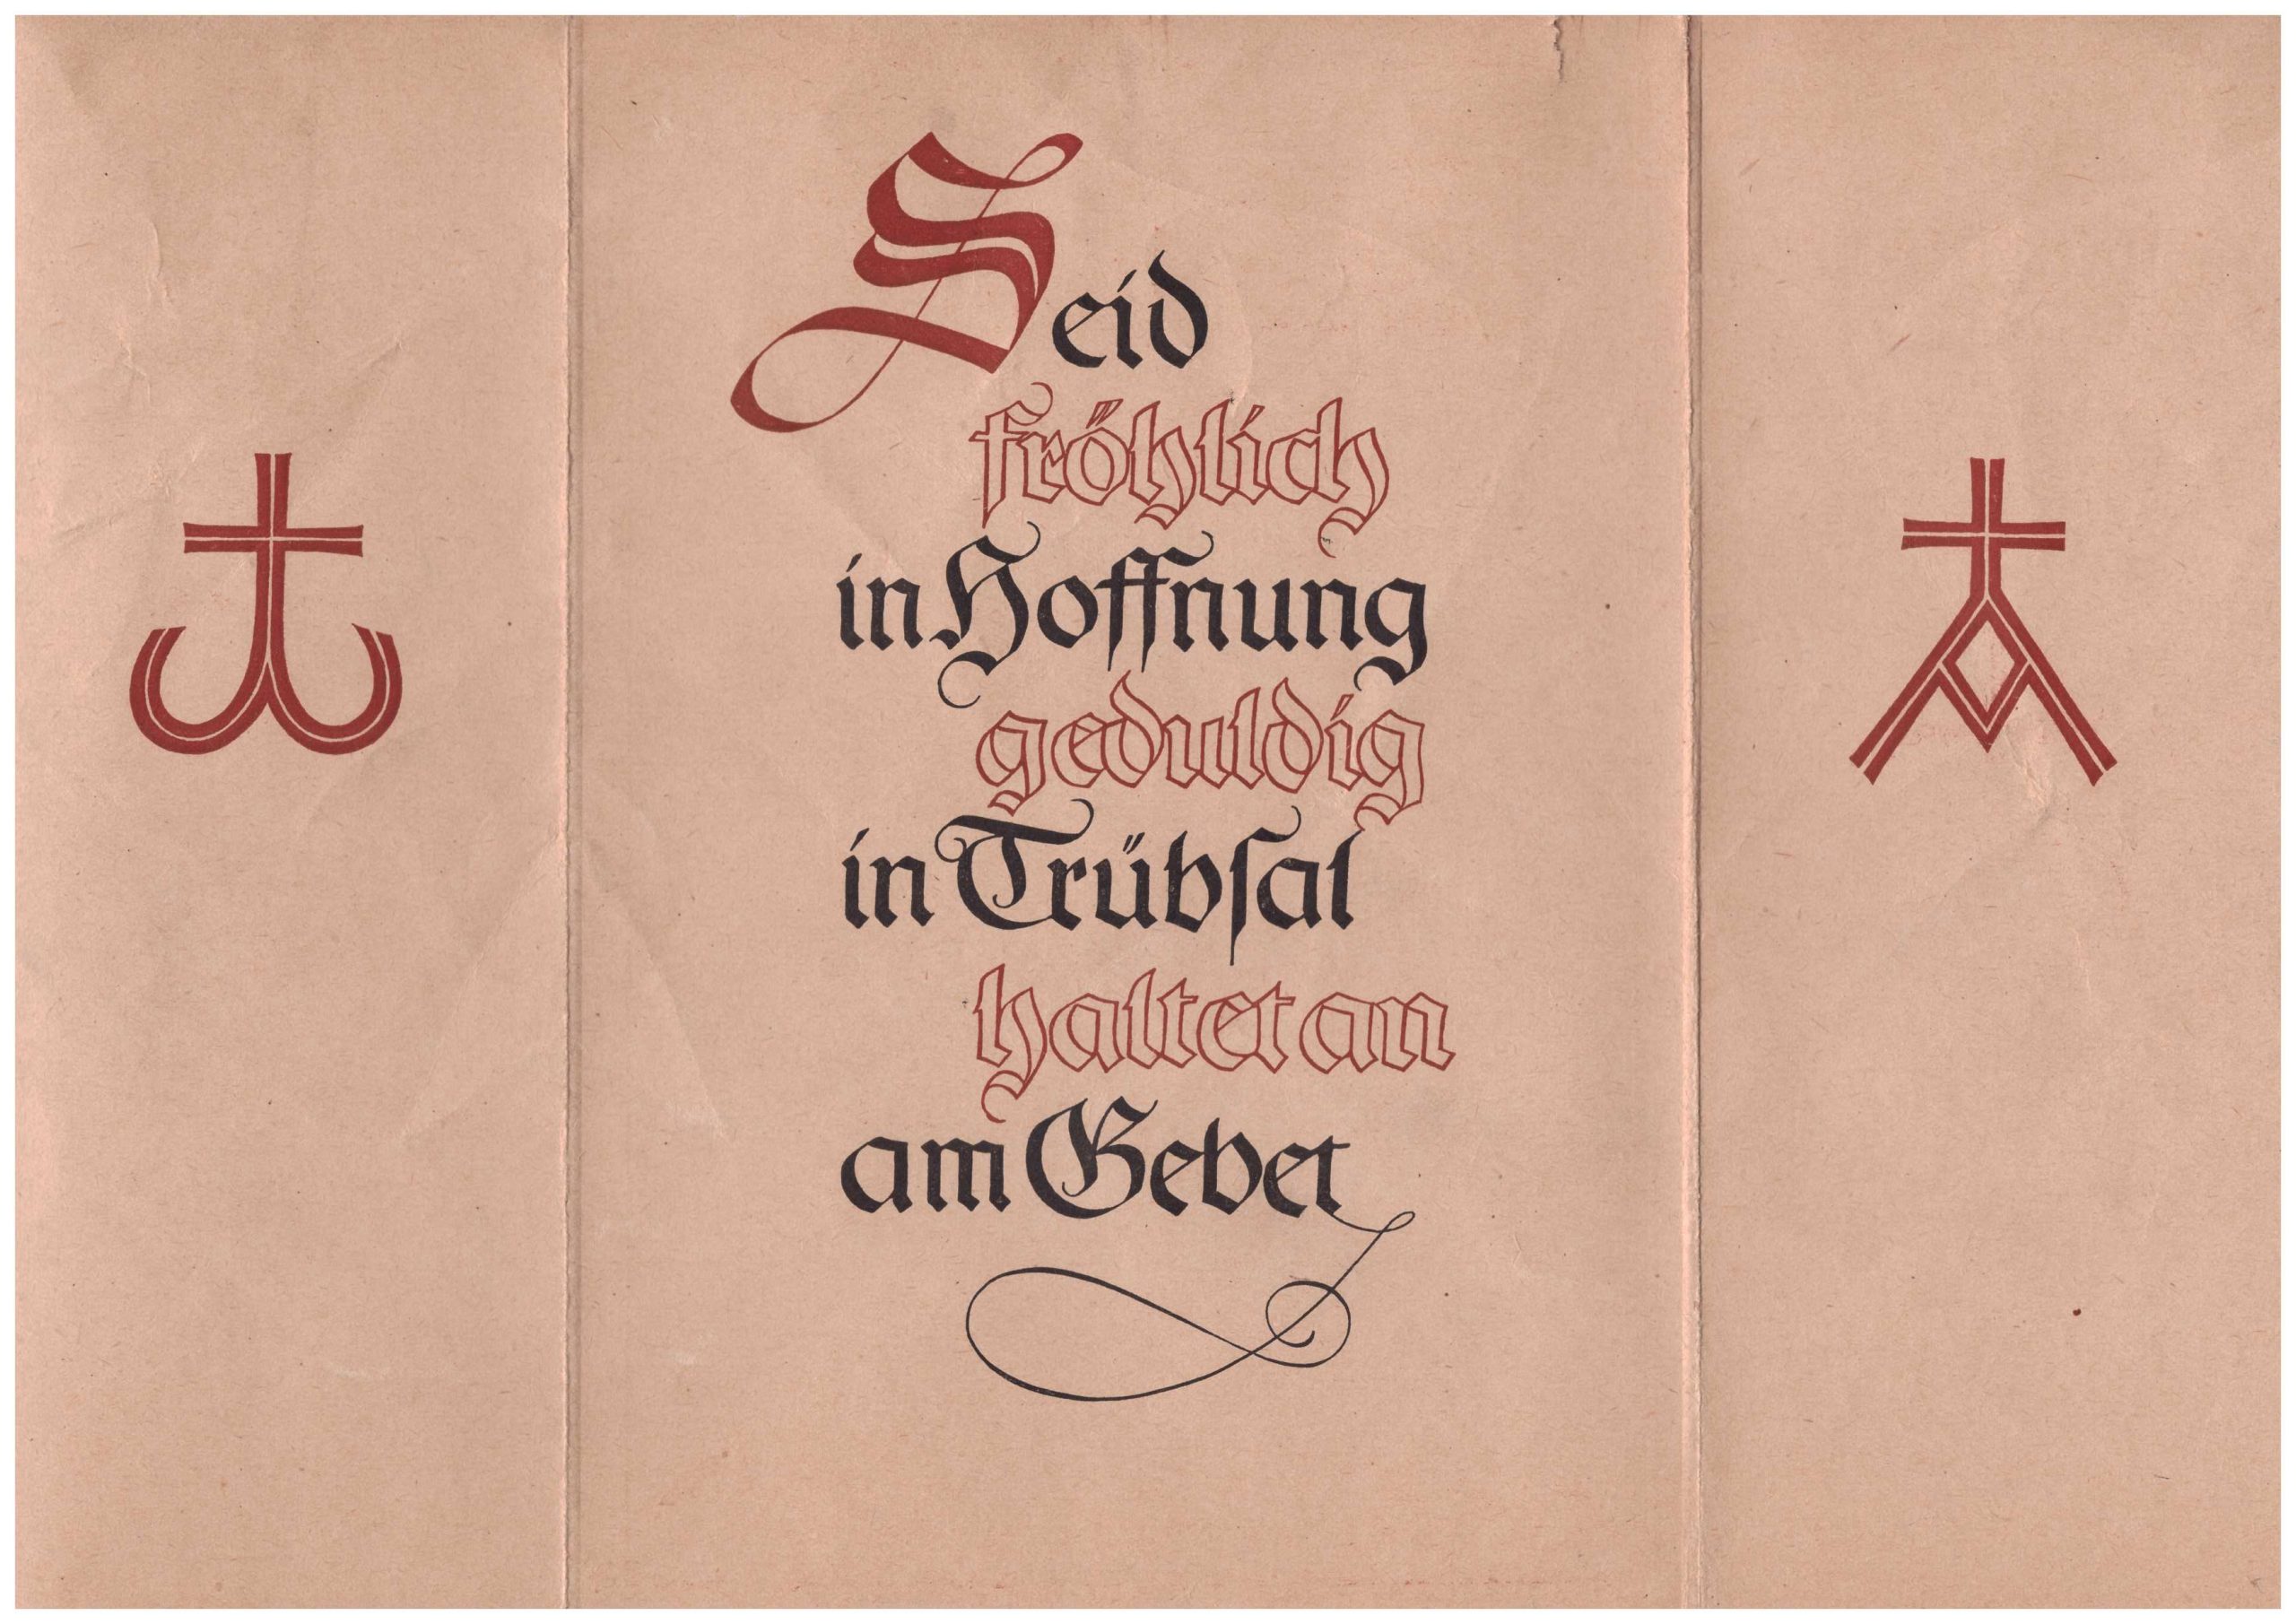 Seid
fröhlich
in Hoffnung
geduldig
in Trübſal
haltet an
am Gebet